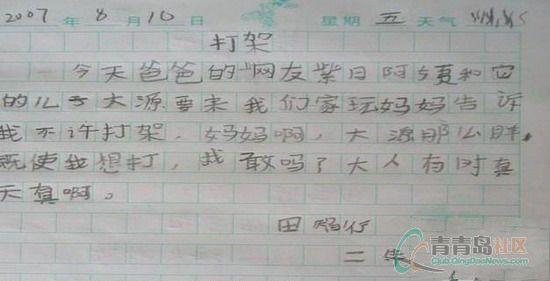 2007年8月10日 星期五 天气
打架
今天爸爸的网友紫日阿姨和它
的儿子大源要来我们家玩妈妈告诉
我不许打架，妈妈啊，大源那么胖，
既使我想打，我敢吗？大人有时真
天真啊。
田
二年
青青岛社区
Club.QingDaoNews.com